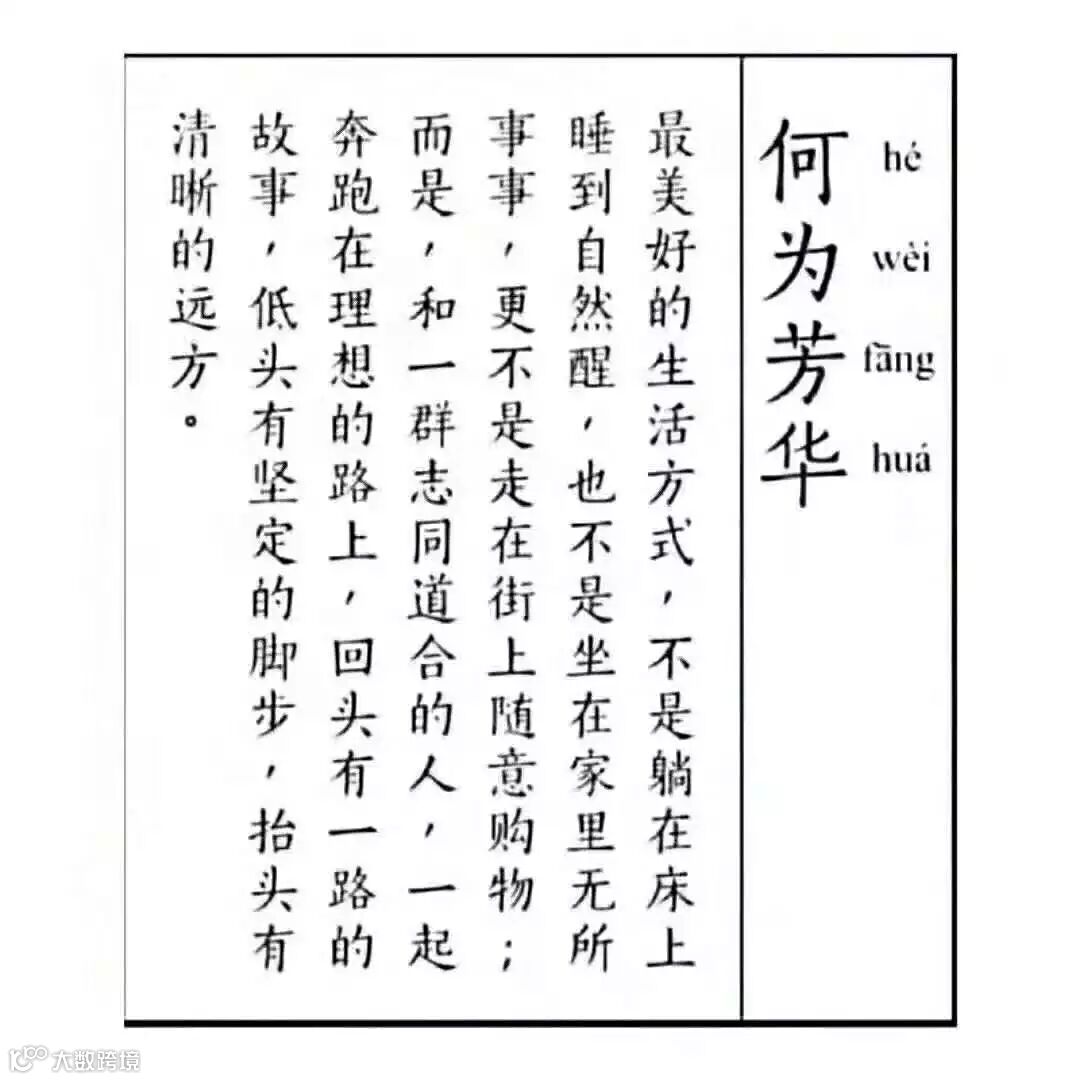 何为芳华
hé
wèi
fāng
huá
最美好的生活方式，不是躺在床上
睡到自然醒，也不是坐在家里无所
事事，更不是走在街上随意购物；
而是，和一群志同道合的人，一起
奔跑在理想的路上，回头有一路的
故事，低头有坚定的脚步，抬头有
清晰的远方。
大数跨境